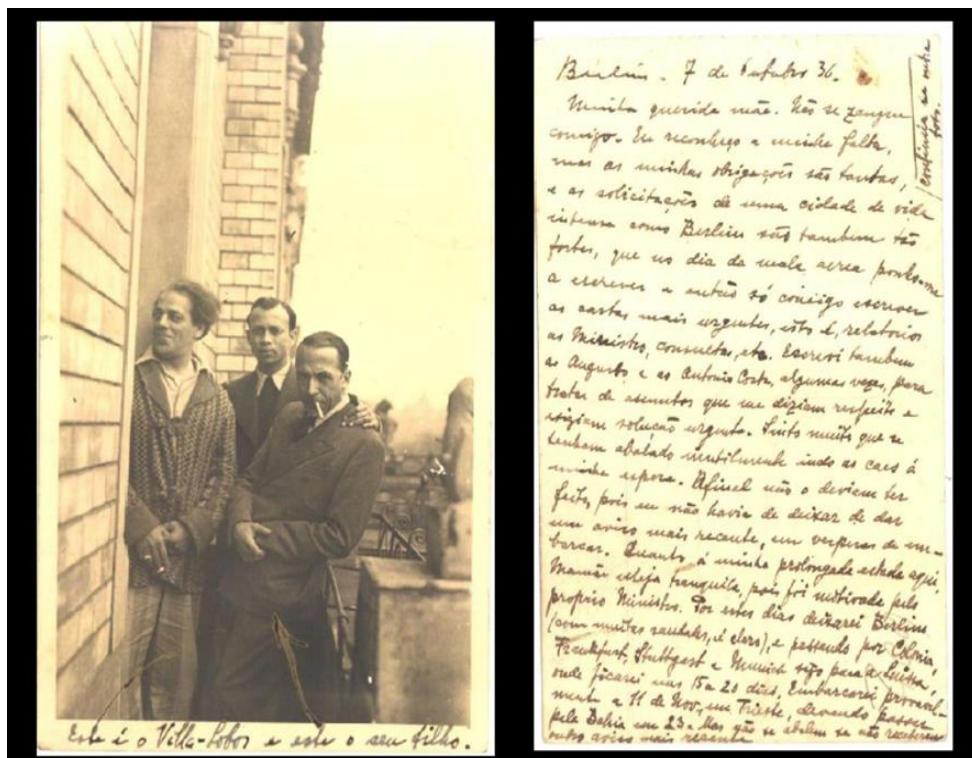 Este é o Villa-Lobos e este o seu filho.
Berlim - 7 de Outubro 36.
continúa na outra
foto.
Minha querida mãe. Não se zangue
comigo. Eu reconheço a minha falta,
mas as minhas obrigações são tantas,
e as solicitações de uma cidade de vida
intensa como Berlim são tambem tão
fortes, que no dia da mala aerea ponho-me
a escrever e então só consigo escrever
as cartas mais urgentes, isto é, relatorios
ao Ministro, consultas, etc. Escrevi tambem
ao Augusto e ao Antonio Costa, algumas vezes, para
tratar de assuntos que me diziam respeito e
exigiam solução urgente. Sinto muito que se
tenham abalado inutilmente indo ao caes á
minha espera. Afinal não o deviam ter
feito, pois eu não havia de deixar de dar
um aviso mais recente, em vesperas de em-
barcar. Quanto á minha prolongada estada aqui,
Mamãe esteja tranquila, pois foi motivada pelo
proprio Ministro. Por estes dias deixarei Berlim
(com muitas saudades, é claro), e passando por Colonia,
Frankfurt, Stuttgart e Munich sigo para a Suissa,
onde ficarei uns 15 a 20 dias. Embarcarei provavel-
mente a 11 de Nov., em Trieste, devendo passar
pela Bahia em 23. Mas não se abalem se não receberem
outro aviso mais recente